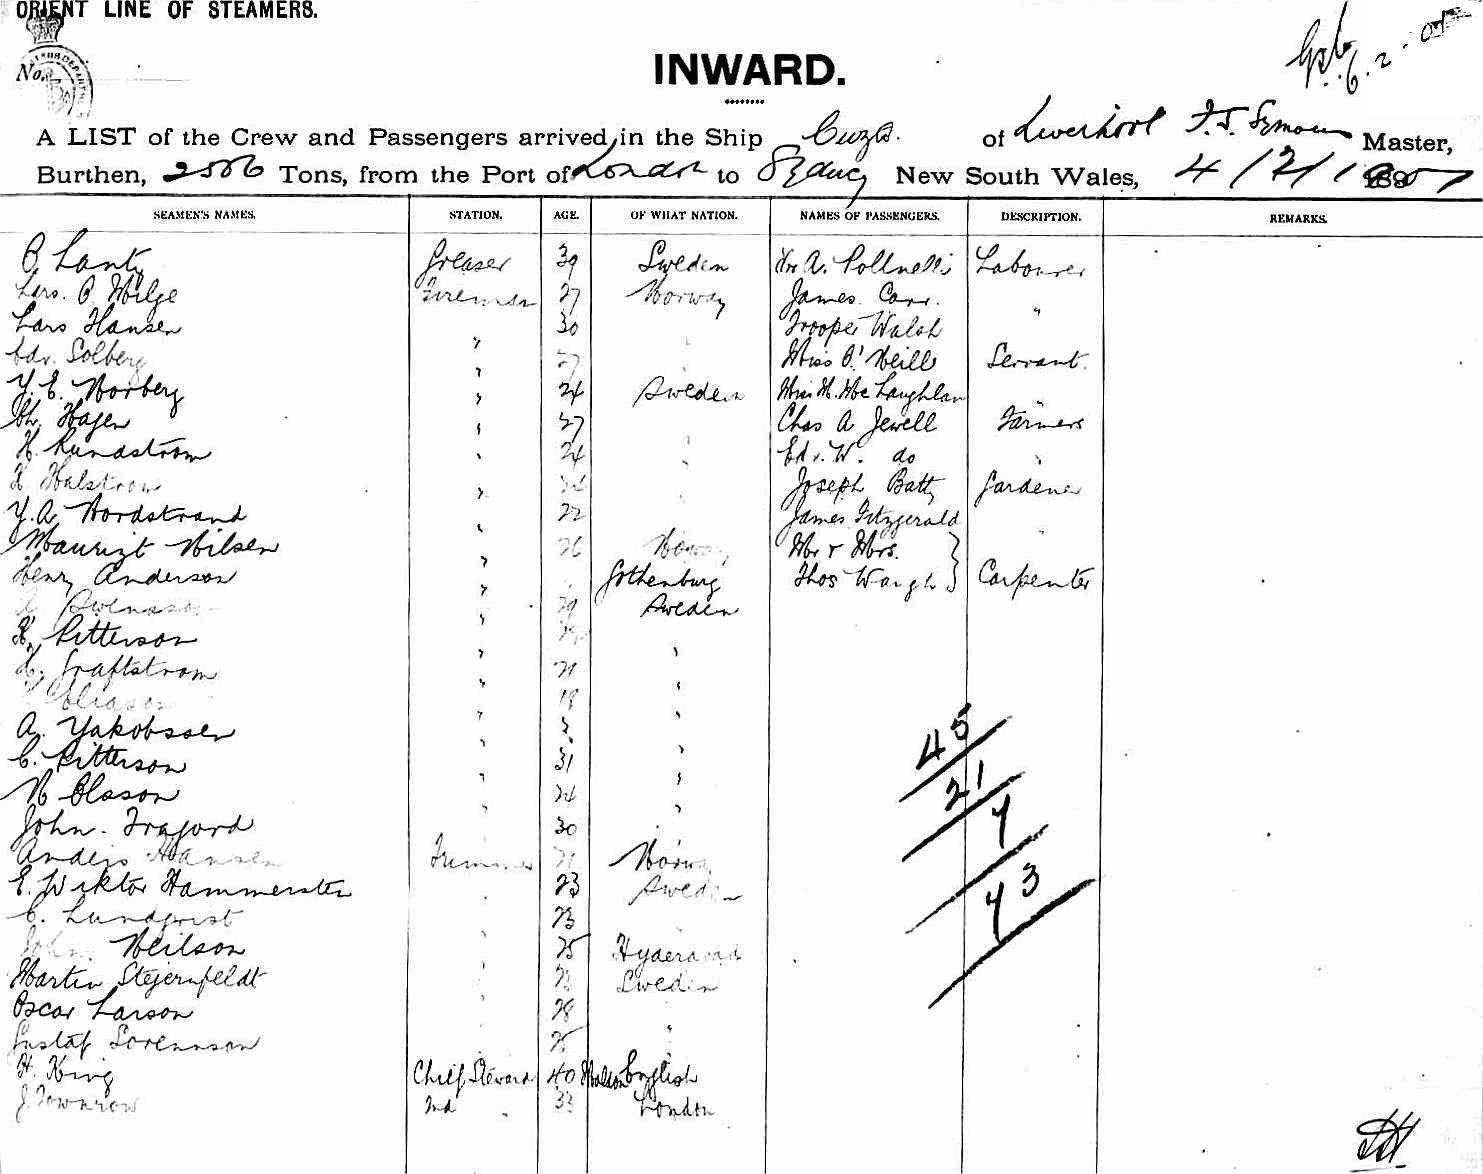 ORIENT LINE OF STEAMERS.
No.
INWARD.
A LIST of the Crew and Passengers arrived in the Ship Cuzco. of Liverpool Master,
Burthen, Tons, from the Port of London to Sydney New South Wales, 4/2/
SEAMEN'S NAMES. STATION. AGE. OF WHAT NATION. NAMES OF PASSENGERS. DESCRIPTION. REMARKS.
Lantz Greaser 39 Sweden A. Labourer
Lars. O. Firemen 27 Norway James Carr. "
Lars Hansen " 30 " Trooper Walsh
Edv. Solberg " 27 Miss O'Neill Servant.
Y. E. Norberg " 24 Sweden Miss M. McLaughlan
Ch. Hagen " 27 " Chas A Jewell Farmers
K. Rundstrom " 24 " Edw. W. do "
K Halstrom " " Joseph Batty Gardener
Y. A. Nordstrand " 22 James Fitzgerald "
Nilsen " 26 Norway Mr & Mrs.
Henry Anderson " Gothenburg Thos Waugh Carpenter
Swensson " 29 Sweden
Pitterson "
Graftstrom " 21 "
Eliason " 18 "
A. Yakobssen " "
C. Pitterson " 31 "
N Olsson " 24 "
John. Traford " 30 "
Anders Hansen Trimmer 21 Norway
E. Wiktor Hammersten 23 Sweden
C. Lundqvist 23
John Neilson 25
Martin Stejernfeldt Sweden
Oscar Larson 28
Gustaf Sorennson 25 "
H. King Chief Steward 40 English
J. Townrow 2nd " 33 London
45
21
7
73